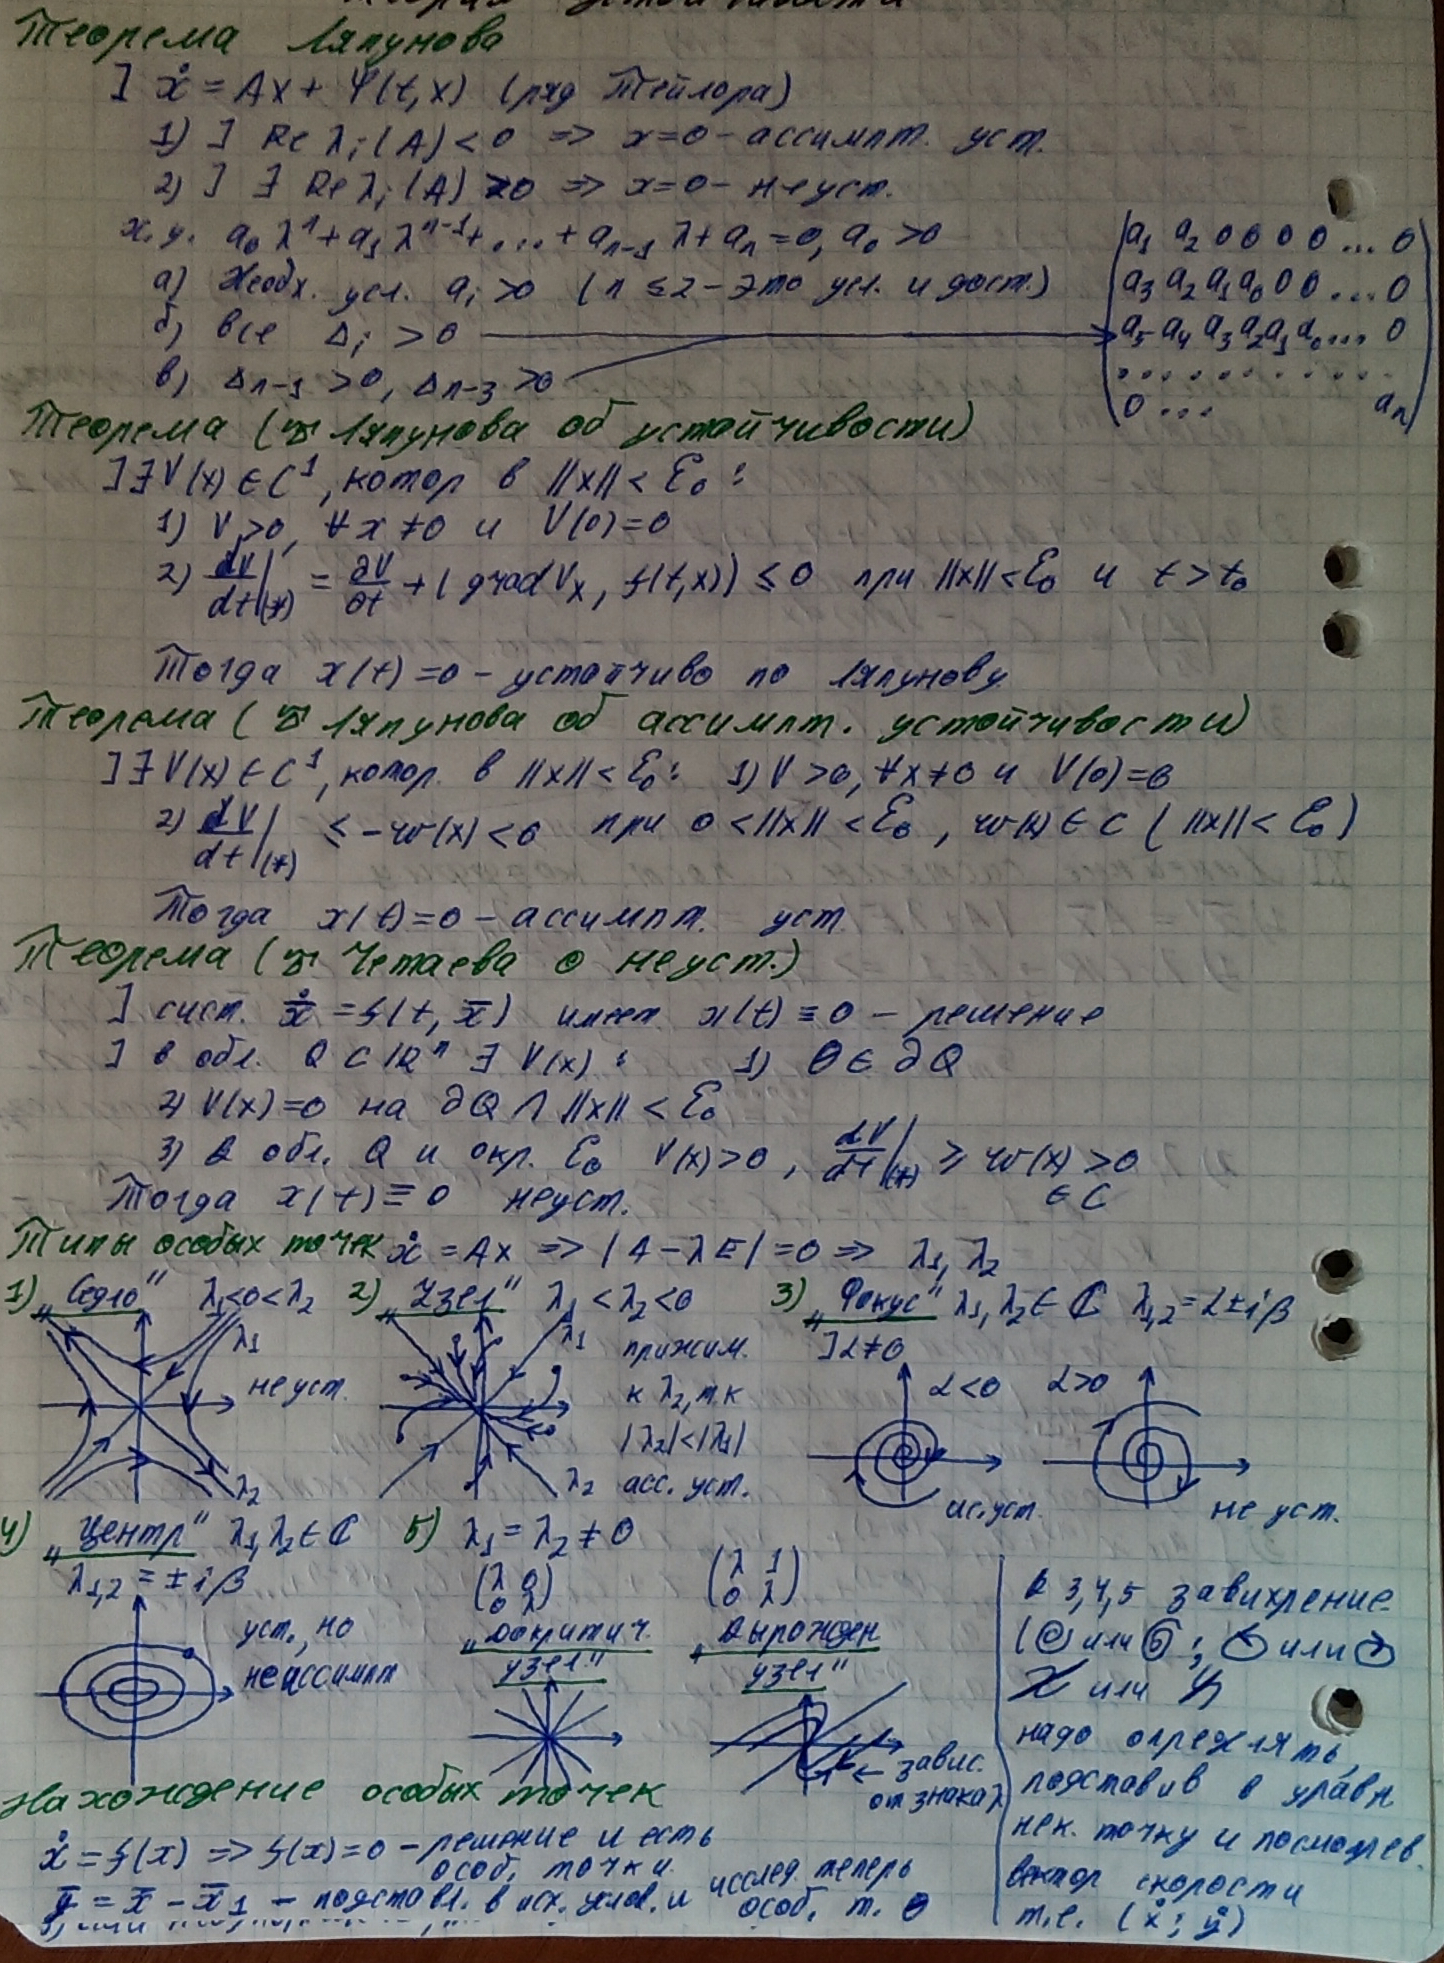 Теорема Ляпунова
] ẋ = Ax + Ψ(t,x) (ряд Тейлора)
1) ] Re λi(A) < 0 => x=0 – ассимпт. уст.
2) ] ∃ Re λi(A) > 0 => x=0 – неуст.
х.у. a₀λⁿ + a₁λⁿ⁻¹ + ... + aₙ₋₁λ + aₙ = 0, a₀ > 0
а) Необх. усл. ai > 0 (n ≤ 2 – это усл. и дост.)
б) все Δi > 0
в) Δn-1 > 0, Δn-3 > 0
a₁ a₂ 0 0 0 0 ... 0
a₃ a₂ a₁ a₀ 0 0 ... 0
a₅ a₄ a₃ a₂ a₁ a₀ ... 0
. . . . . . . . . .
0 ... aₙ
Теорема (Ляпунова об устойчивости)
] ∃ V(x) ∈ C¹, котор в ||x|| < ε₀:
1) V > 0, ∀x ≠ 0 и V(0) = 0
2) dV/dt|(*) = ∂V/∂t + (grad Vx, f(t,x)) ≤ 0 при ||x|| < ε₀ и t > t₀
Тогда x(t) = 0 – устойчиво по Ляпунову
Теорема (Ляпунова об ассимпт. устойчивости)
] ∃ V(x) ∈ C¹, котор. в ||x|| < ε₀: 1) V > 0, ∀x ≠ 0 и V(0) = 0
2) dV/dt|(*) ≤ -w(x) < 0 при 0 < ||x|| < ε₀, w(x) ∈ C (||x|| < ε₀)
Тогда x(t) = 0 – ассимпт. уст.
Теорема (Четаева о неуст.)
] сист. ẋ = f(t, x̄) имеет x(t) ≡ 0 – решение
] в обл. Q ⊂ ℝⁿ ∃ V(x): 1) 0 ∈ ∂Q
2) V(x) = 0 на ∂Q ∩ ||x|| < ε₀
3) В обл. Q и окр. ε₀ V(x) > 0, dV/dt|(*) ≥ w(x) > 0
∈ C
Тогда x(t) ≡ 0 неуст.
Типы особых точек ẋ = Ax => |A - λE| = 0 => λ₁, λ₂
1) „Седло" λ₁ < 0 < λ₂
λ₁
неуст.
λ₂
2) „Узел" λ₁ < λ₂ < 0
λ₁
λ₂
прижим.
к λ₂, т.к
|λ₂| < |λ₁|
асс. уст.
3) „Фокус" λ₁, λ₂ ∈ ℂ λ₁,₂ = α ± iβ
] α ≠ 0
α < 0
ас. уст.
α > 0
не уст.
4) „Центр" λ₁, λ₂ ∈ ℂ
λ₁,₂ = ± iβ
уст., но
не ассимпт
5) λ₁ = λ₂ ≠ 0
(λ 0
0 λ)
„Дикритич.
узел"
(λ 1
0 λ)
„Вырожден
узел"
← завис.
от знака λ
В 3,4,5 завихрение
( или ; или
или
надо определять,
подставив в уравн
нек. точку и посмотрев.
вектор скорости
т.е. (ẋ; ẏ)
Нахождение особых точек
ẋ = f(x) => f(x) = 0 – решение и есть
особ. точки.
ȳ = x̄ - x̄₁ – подставл. в исх. услов. и исслед. теперь
особ. т. 0